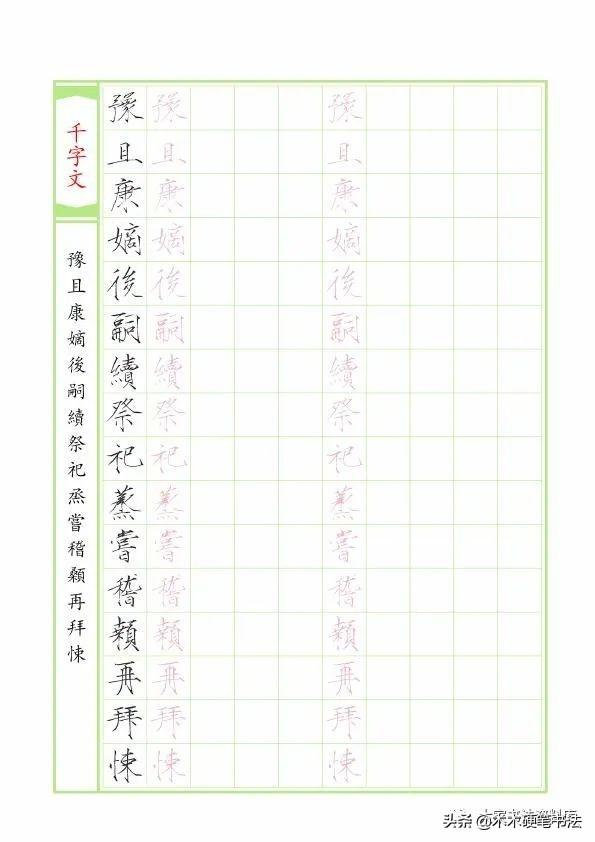 千字文
豫且康嫡後嗣續祭祀烝嘗稽顙再拜悚
豫且康嫡後嗣續祭祀蒸嘗稽顙再拜悚
豫且康嫡後嗣續祭祀蒸嘗稽顙再拜悚
豫且康嫡後嗣續祭祀蒸嘗稽顙再拜悚
头条 @木木硬笔书法